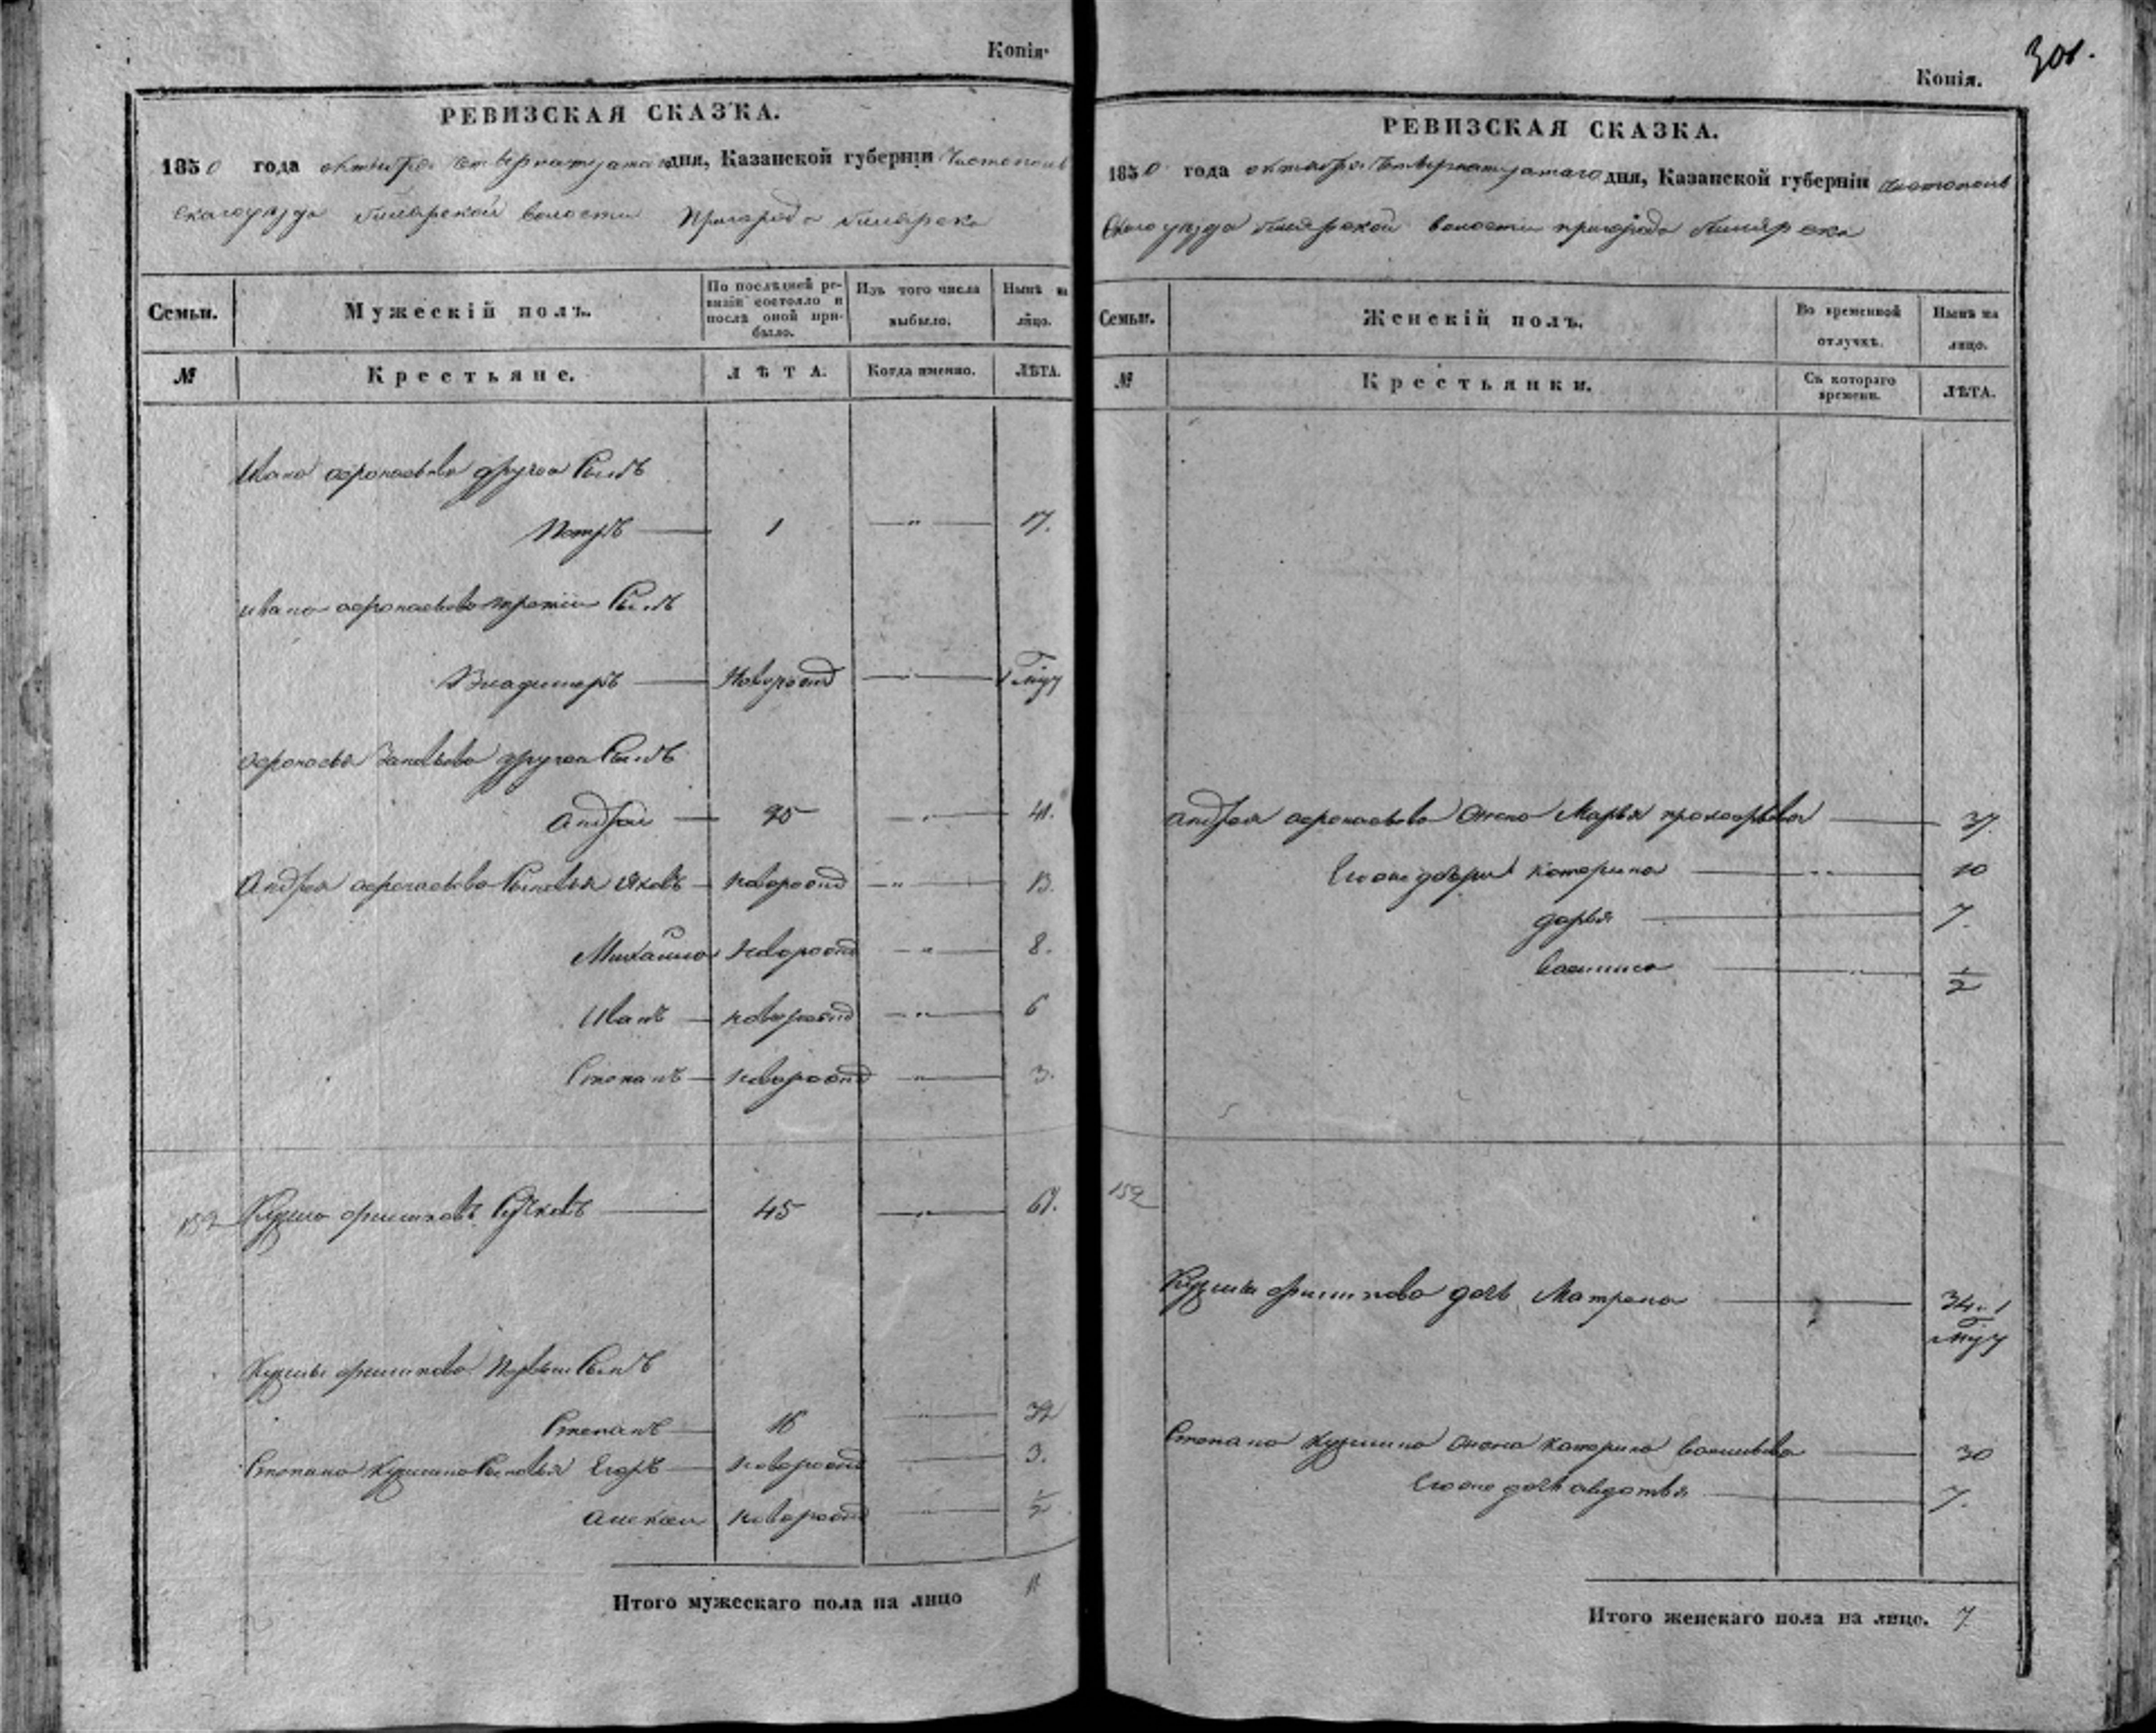 Копія.
РЕВИЗСКАЯ СКАЗКА.
1850 года октября дня, Казанской губерніи Чистополь
скаго уѣзда Билярской волости Пригорода Билярска
Семьи. Мужескій полъ. По послѣдней ревизіи состояло и послѣ оной прибыло. Изъ того числа выбыло. Нынѣ на лицо.
№ Крестьяне. ЛѢТА. Когда именно. ЛѢТА.
Ивана другой Сынъ
Петръ 1 — „ — 17.
Ивана третій Сынъ
Владимеръ Новорожд — „ — 1
другой Сынъ
Андрей 25 — „ — 41.
Андрея Сыновья Яковъ новорожд — „ — 13.
Михайло Новорожд — „ — 8.
Иванъ новорожд — „ — 6
Степанъ новорожд — „ — 3.
152 Кузма 45 — „ — 61.
Кузмы Первый Сынъ
Степанъ 16 — „ — 32
Степана Кузмина Сыновья Егоръ новорожд — „ — 3.
Алексей новорожд — „ — 1/2
Итого мужескаго пола на лицо 11
301.
Копія.
РЕВИЗСКАЯ СКАЗКА.
1850 года октября дня, Казанской губерніи Чистополь
скаго уѣзда Билярской волости пригорода Билярска
Семьи. Женскій полъ. Во временной отлучкѣ. Нынѣ на лицо.
№ Крестьянки. Съ котораго времени. ЛѢТА.
Андрея жена Марья прохорова — 37.
Его же дочери Катерина — „ — 10
дарья — 7.
василиса — „ — 1/2
152
Кузмы дочь Матрена — 34.
Степана Кузмина жена Катерина — 30
Его же дочь авдотья — 7.
Итого женскаго пола на лицо. 7.